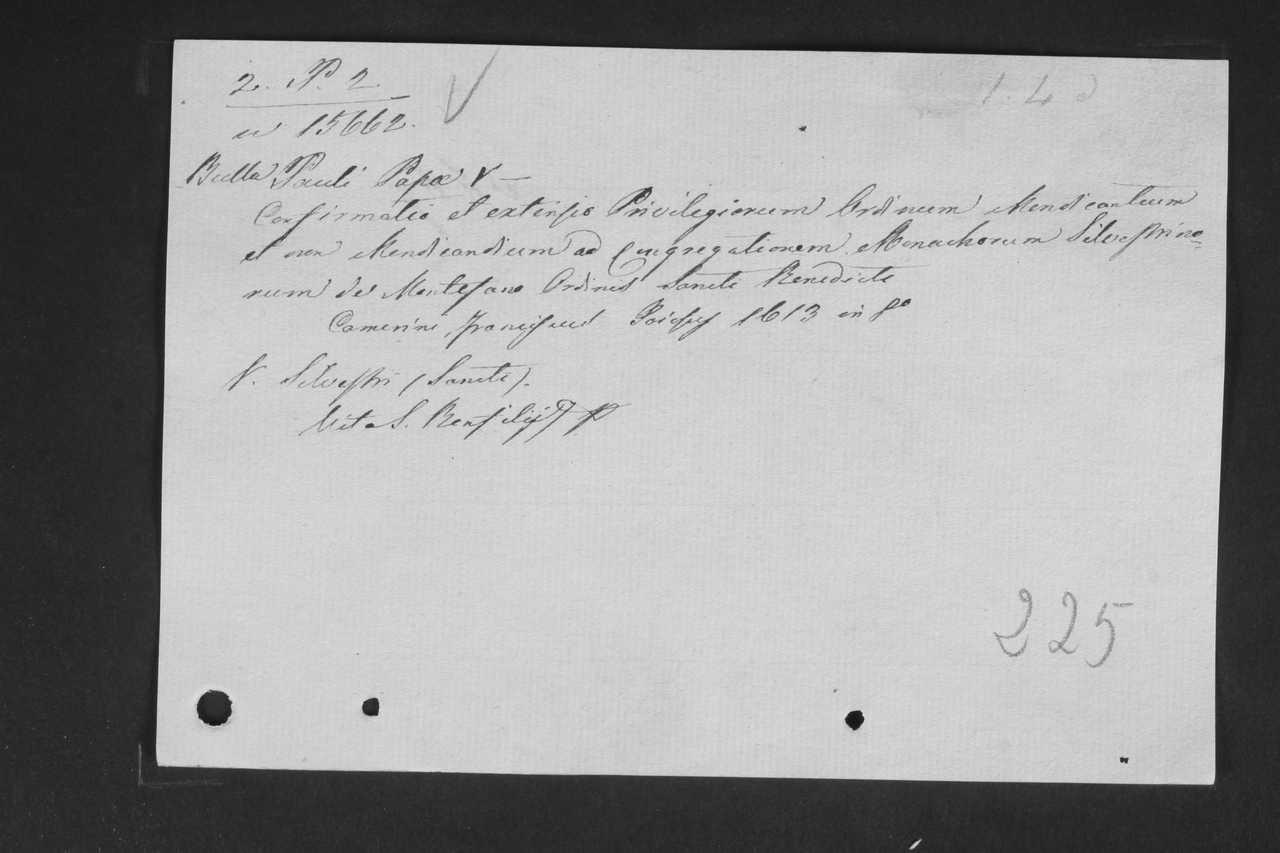 2. P. 2.
n 15662.
Bulla Pauli Papæ V —
Confirmatio et extensio Privilegiorum Ordinum Mendicantium
et non Mendicandium ad Congregationem Monachorum Silvestrino-
rum de Montefano Ordinis Sancti Benedicti
Camerini, Franciscus 1613 in 8º
V. Silvestri (Sancti).
Vita S. Bonfilij
225